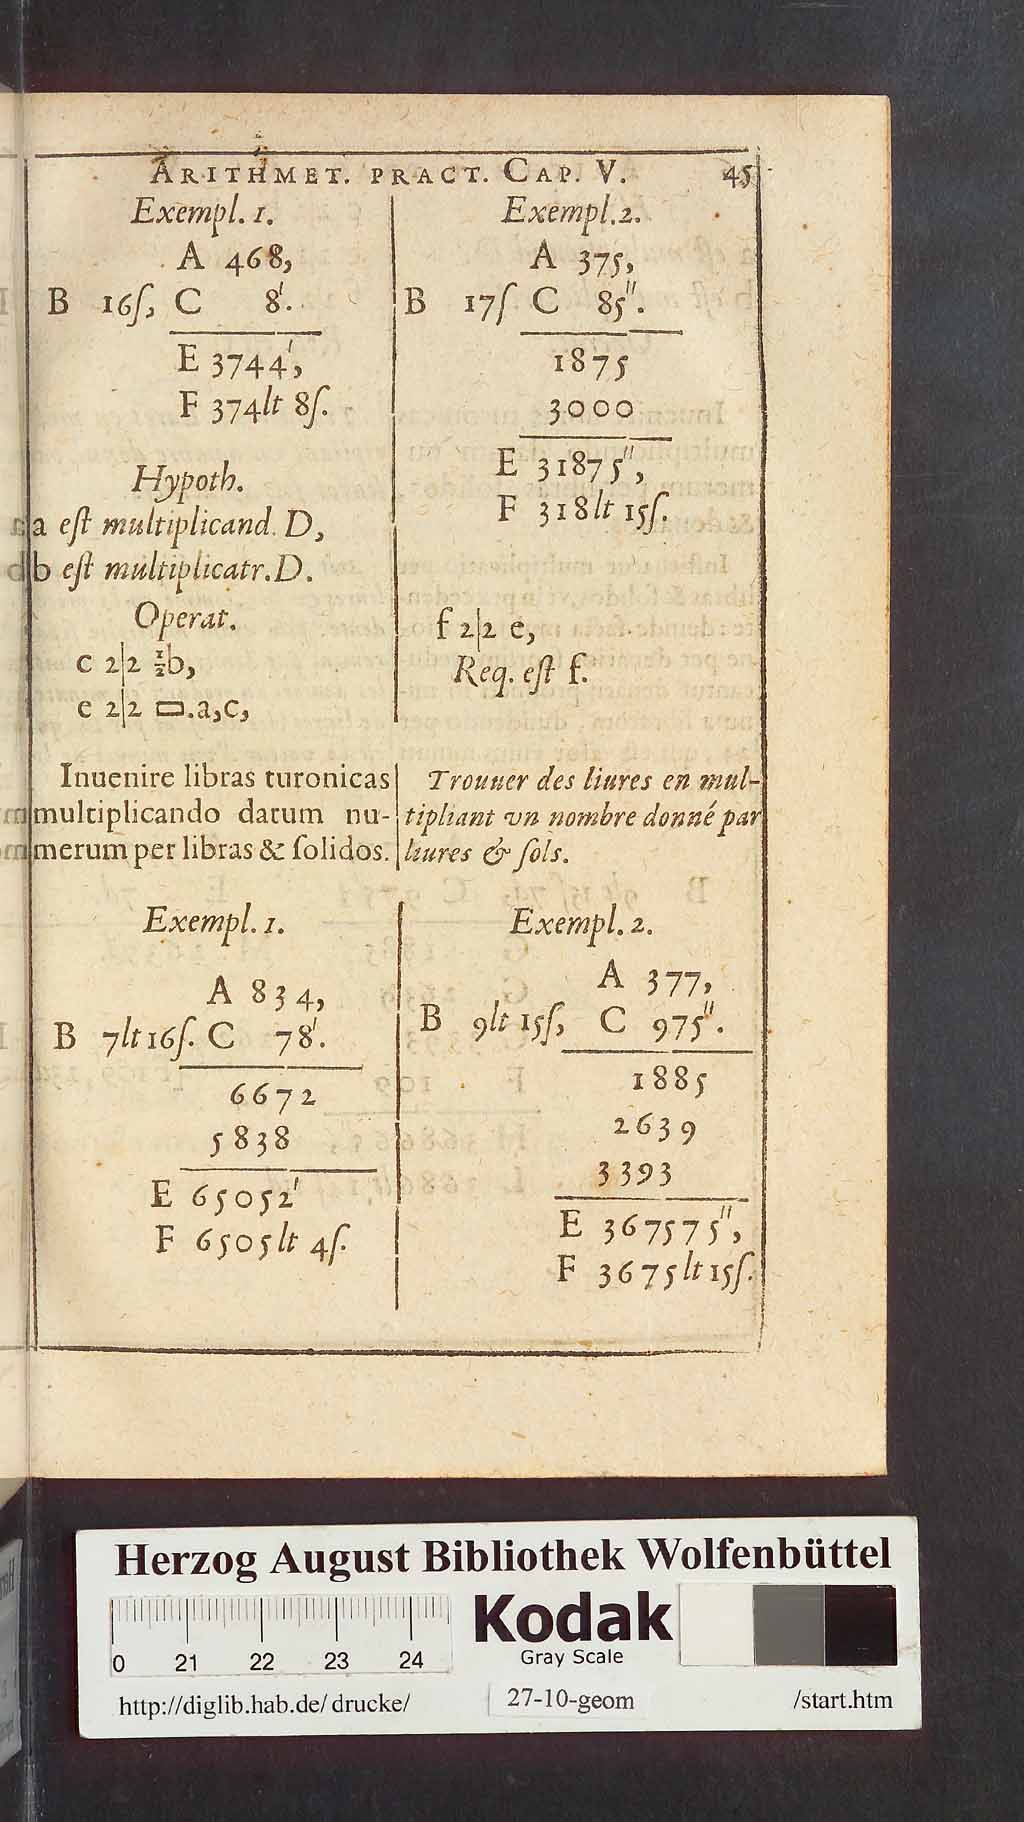 ARITHMET. PRACT. CAP. V. 45
Exempl. 1.
A 468,
B 16ſ, C 8'.
E 3744',
F 374lt 8ſ.
Hypoth.
a eſt multiplicand. D,
b eſt multiplicatr. D.
Operat.
c 2|2 ½b,
e 2|2 ▭.a,c,
Exempl. 2.
A 375,
B 17ſ C 85''.
1875
3000
E 31875'',
F 318lt 15ſ.
f 2|2 e,
Req. eſt f.
Inuenire libras turonicas
multiplicando datum nu-
merum per libras & ſolidos.
Trouuer des liures en mul-
tipliant vn nombre donné par
liures & ſols.
Exempl. 1.
A 834,
B 7lt 16ſ. C 78'.
6672
5838
E 65052'
F 6505lt 4ſ.
Exempl. 2.
A 377,
B 9lt 15ſ, C 975''.
1885
2639
3393
E 367575'',
F 3675lt 15ſ.
Herzog August Bibliothek Wolfenbüttel
0 21 22 23 24
Kodak
Gray Scale
http://diglib.hab.de/ drucke/ 27-10-geom /start.htm